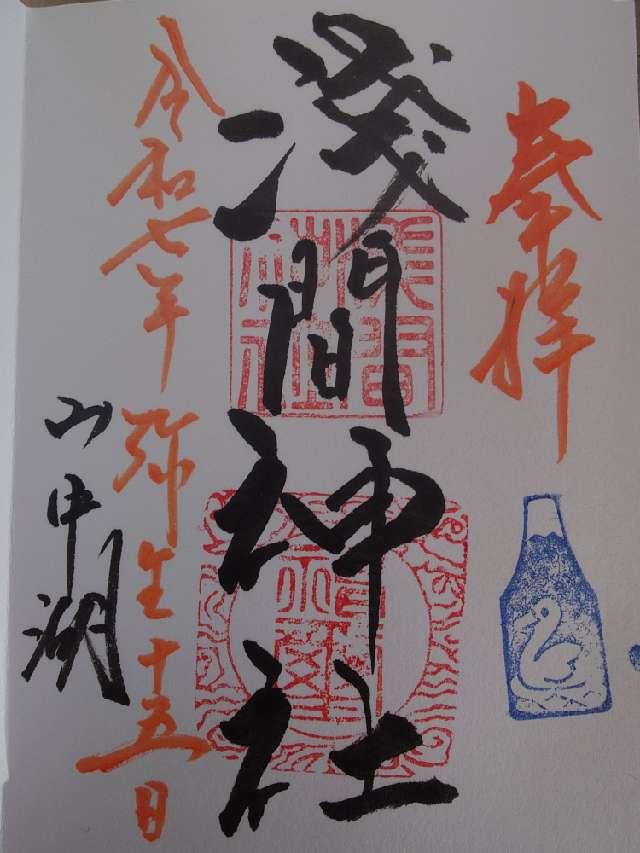 奉拝
淺間神社
令和七年弥生十五日
山中湖